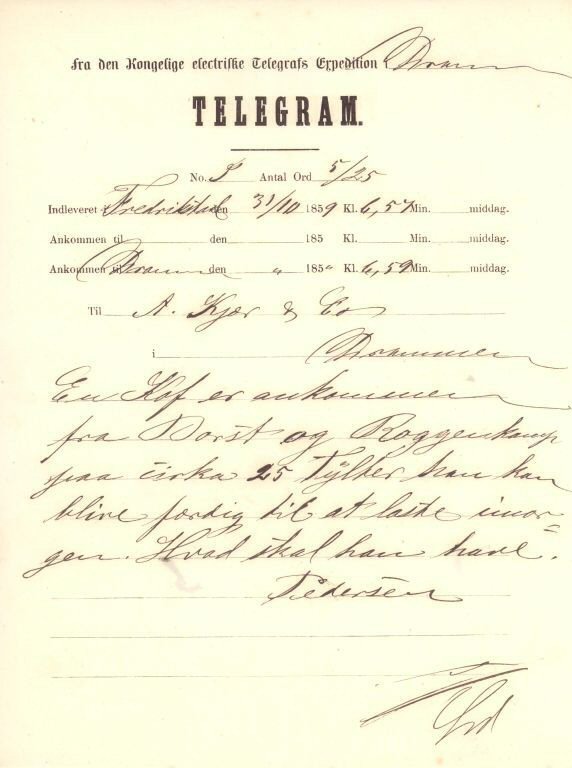 Fra den Kongelige electriske Telegrafs Expedition i Drammen
TELEGRAM.
No. Antal Ord 5/25
Indleveret i Fredrikstad den 31/10 1859 Kl. 6,57 Min. middag.
Ankommen til den 185 Kl. Min. middag.
Ankommen til Drammen den " 185" Kl. 6,59 Min. middag.
Til A. Kjær & Co
i Drammen
En Kof er ankommen
fra Dorst og Roggenkamp
paa cirka 25 Tylter han kan
blive færdig til at laste imor=
gen. Hvad skal han have.
Pedersen